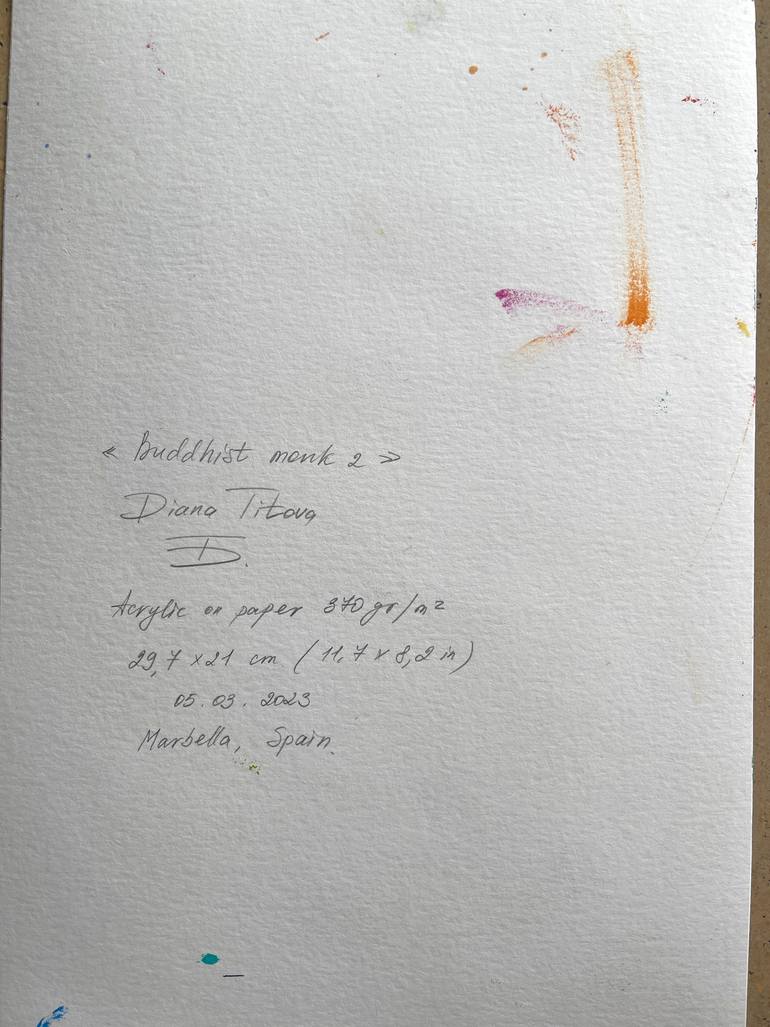 « Buddhist monk 2 »
Diana Titova
D.
Acrylic on paper 370 gr/m²
29,7 x 21 cm (11,7 x 8,2 in)
05.03.2023
Marbella, Spain.